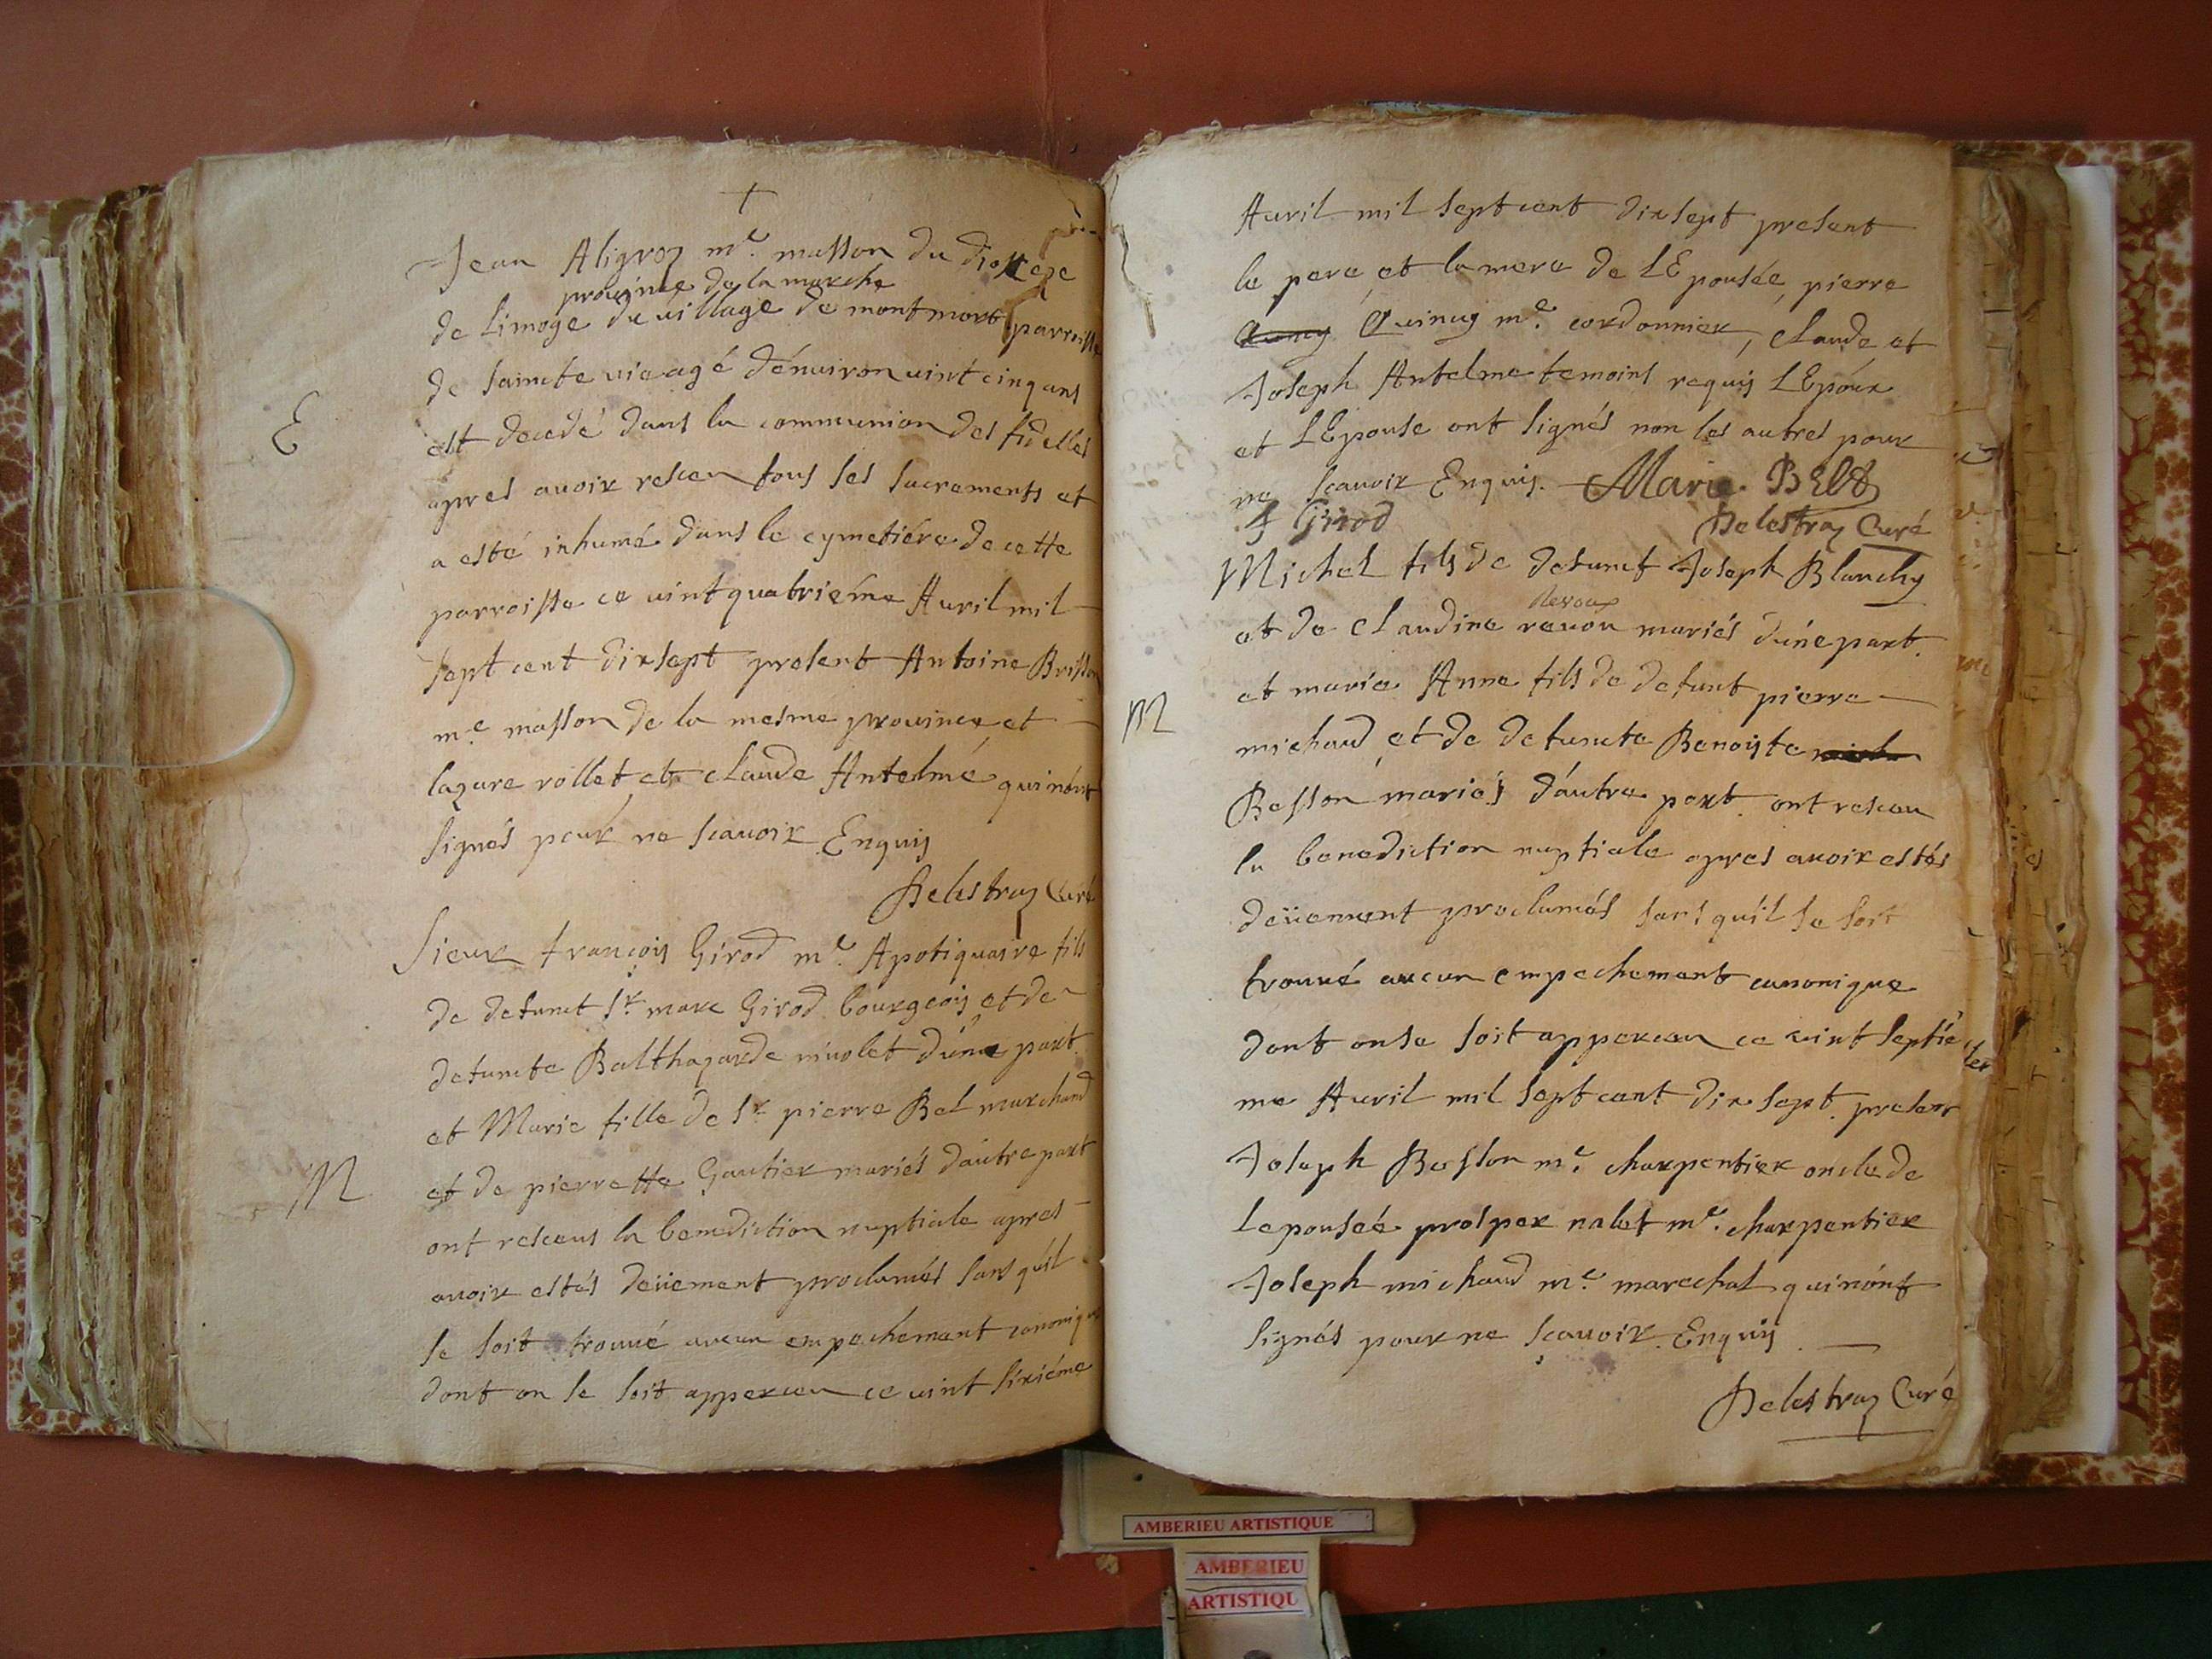 +
Jean Aligroz me. masson du diocese
province de la marche
de Limoge du village de montmort parroisse
de saincte vie agé dénuiron uint cinq ans
E
est decedé dans la communion des fidelles
apres auoir resceu tous ses sacrements et
a esté inhumé dans le cymetiére de cette
parroisse ce uint quatriéme Auril mil
sept cent dix sept present Antoine Brisson
me. masson de la mesme prouince et
lazare rollet et claude Antelme qui nónt
signés pour ne scauoir Enquis
Delestraz Curé
Sieur françois Girod me. Apotiquaire fils
de defunct Sr. marc Girod bourgeois et de
defuncte Balthazarde niuolet dúne part
et Marie fille de Sr. pierre Bel marchand
M
et de pierrette Gautier mariés dáutre part
ont resceus la benediction nuptiale apres
auoir estés deüement proclamés sans quíl
se soit trouué aucun empechement canonique
dont on se soit apperceu ce uint sixiéme
Auril mil sept cent dix sept present
le pere et la mere de LEpousée, pierre
Quinuy me. cordonnier, claude et
Joseph Antelme temoins requis LEpóux
et LEpouse ont signés non les autres pour
ne scauoir Enquis. Marie BEL
f Girod Delestraz Curé
Michel fils de defunct Joseph Blanchy
reuoux
et de claudine reuou mariés dúne part.
et marie Anne fils de defunt pierre
M
michaud et de defuncte Benoiste
Besson mariés dáutre part ont resceu
la benediction nuptiale apres auoir estés
deüement proclamés sans quíl se soit
trouué aucun empechement canonique
dont on se soit apperceu ce uint septié
me Auril mil sept cent dix sept. present
Joseph Besson me. charpentier oncle de
Lepousée prosper nalet me. charpentier
Joseph michaud me. marechal qui nónt
signés pour ne scauoir. Enquis
Delestraz Curé
AMBERIEU ARTISTIQUE
AMBERIEU
ARTISTIQU